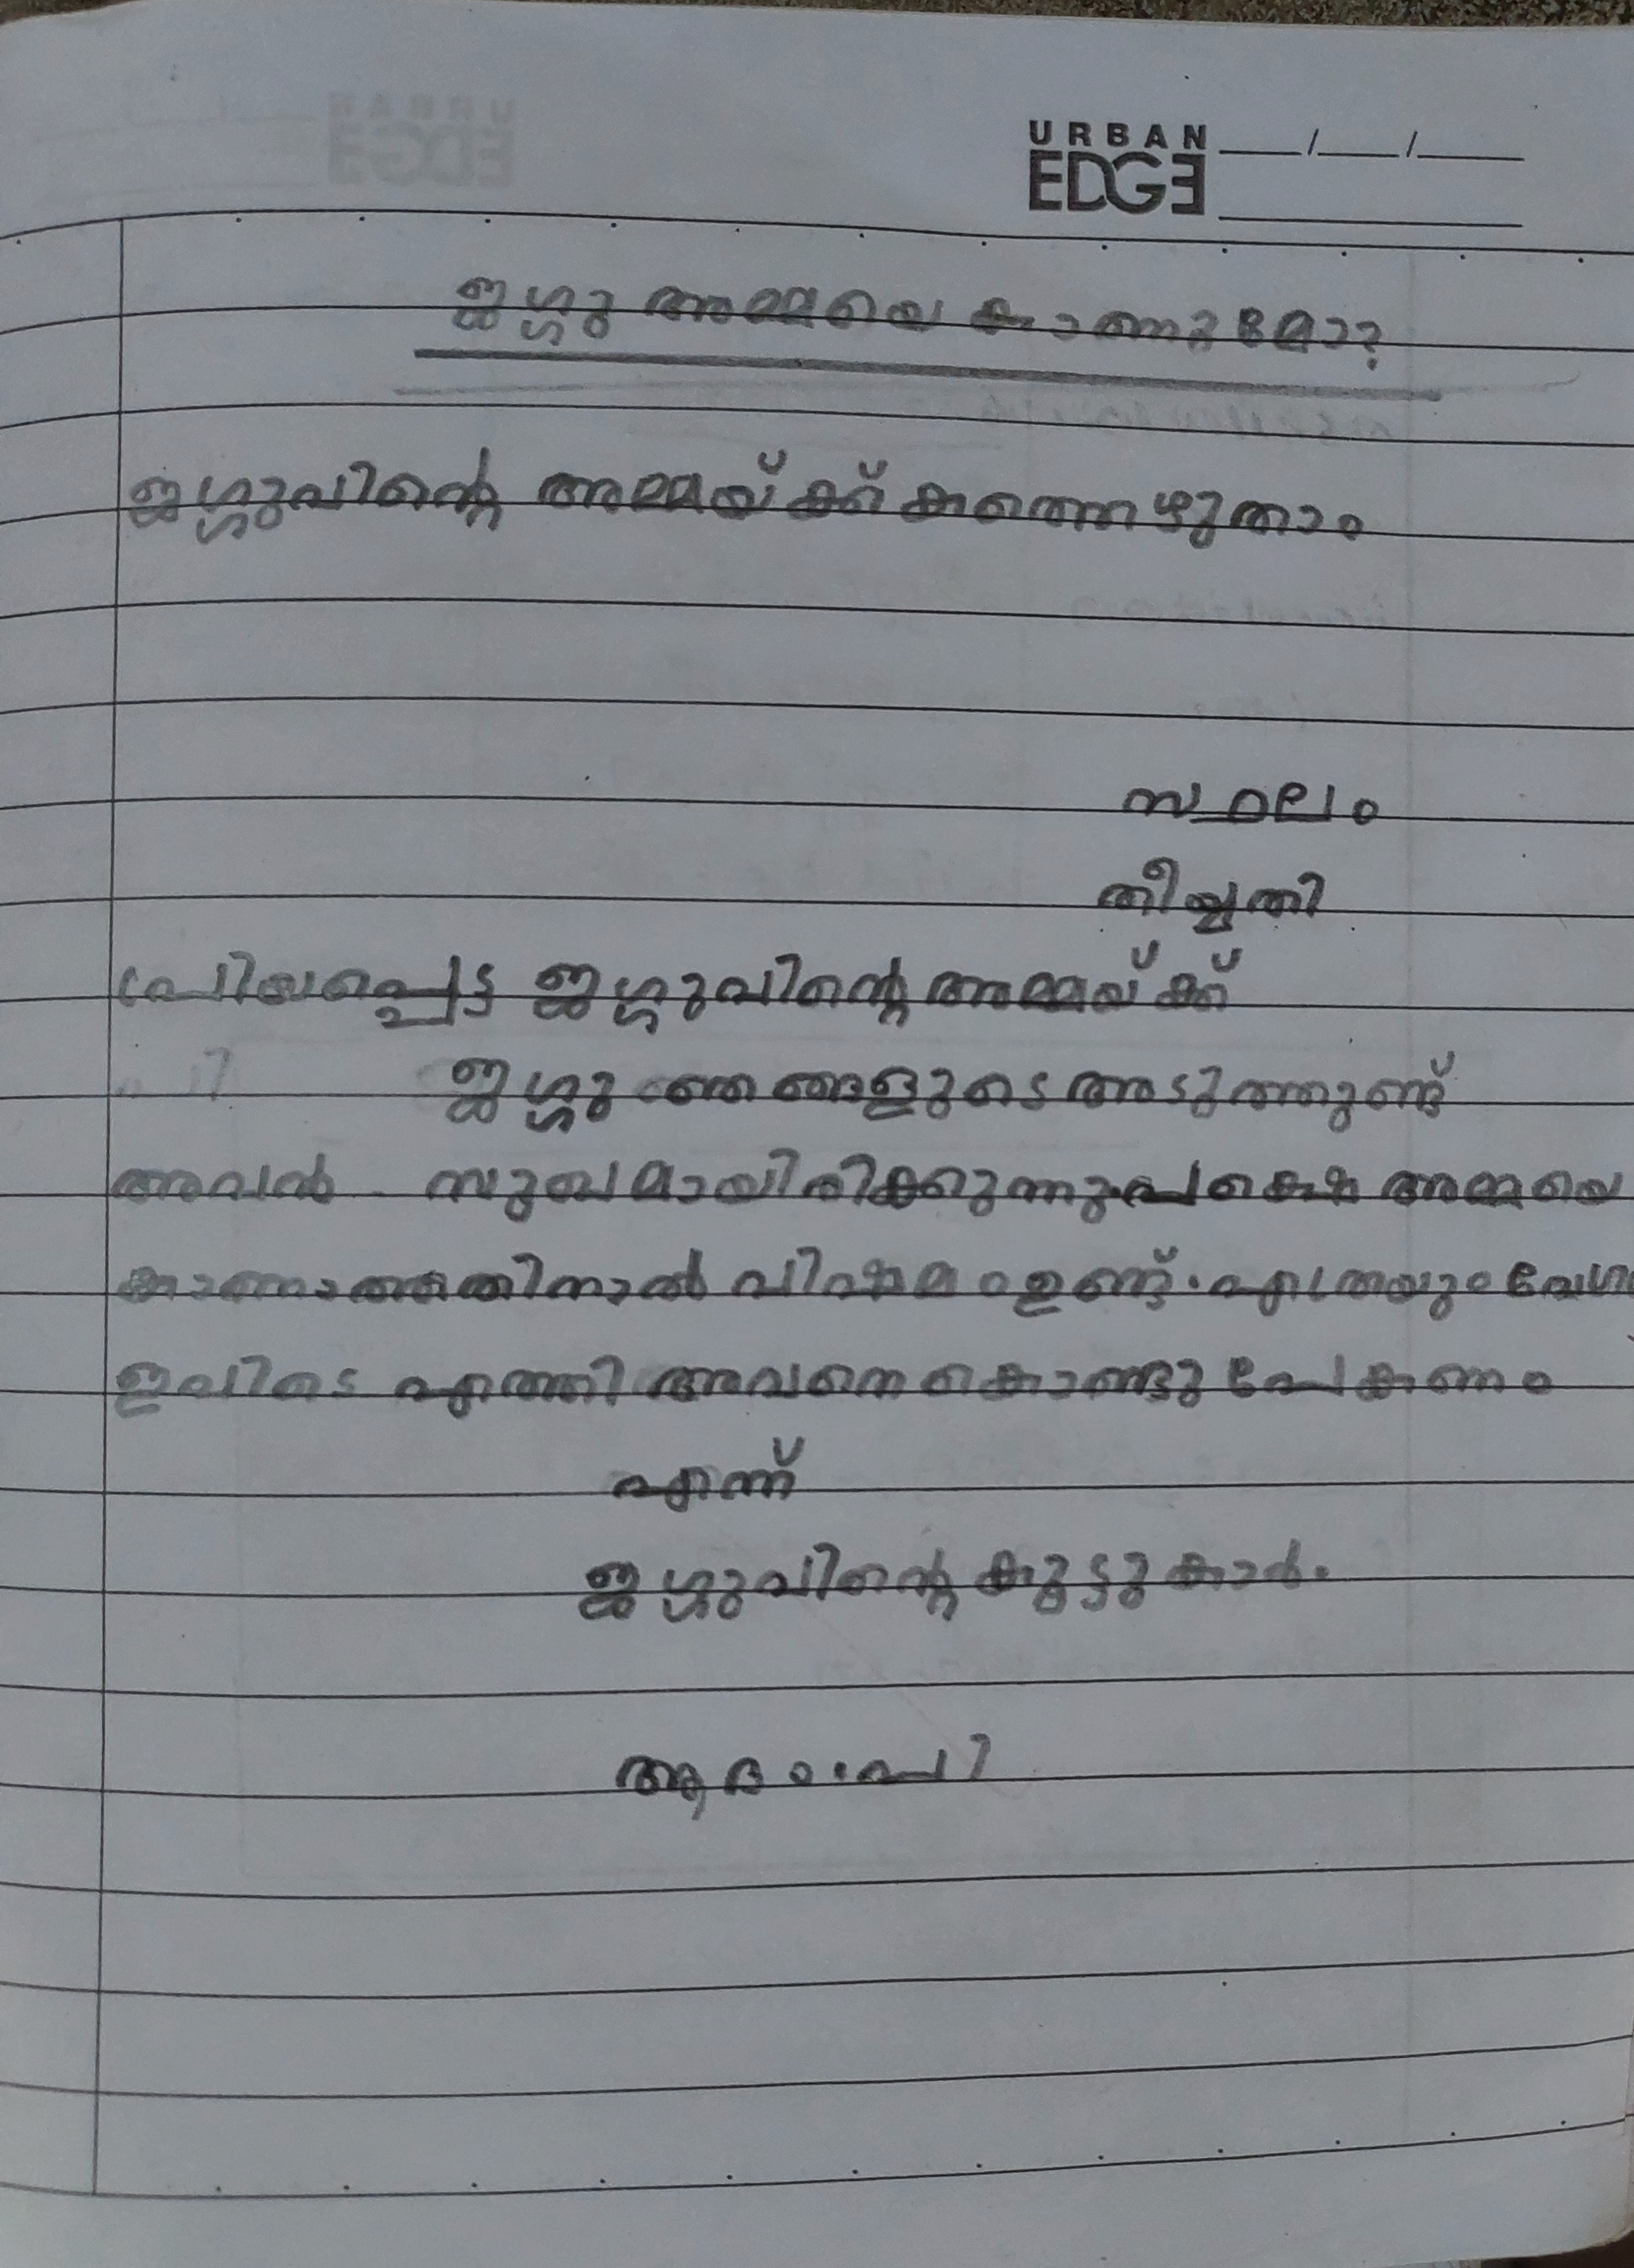 URBAN
EDGE
ജഗ്ഗു അമ്മയെ കാണുമോ?
ജഗ്ഗുവിന്റെ അമ്മയ്ക്ക് കത്തെഴുതാം
സ്ഥലം
തീയ്യതി
പ്രിയപ്പെട്ട ജഗ്ഗുവിന്റെ അമ്മയ്ക്ക്
ജഗ്ഗു ഞങ്ങളുടെ അടുത്തുണ്ട്
അവൻ സുഖമായിരിക്കുന്നു. പക്ഷെ അമ്മയെ
കാണാത്തതിനാൽ വിഷമം ഉണ്ട്. എത്രയും
ഇവിടെ എത്തി അവനെ കൊണ്ടു പോകണം
എന്ന്
ജഗ്ഗുവിന്റെ കൂട്ടുകാർ.
ആദം.പി